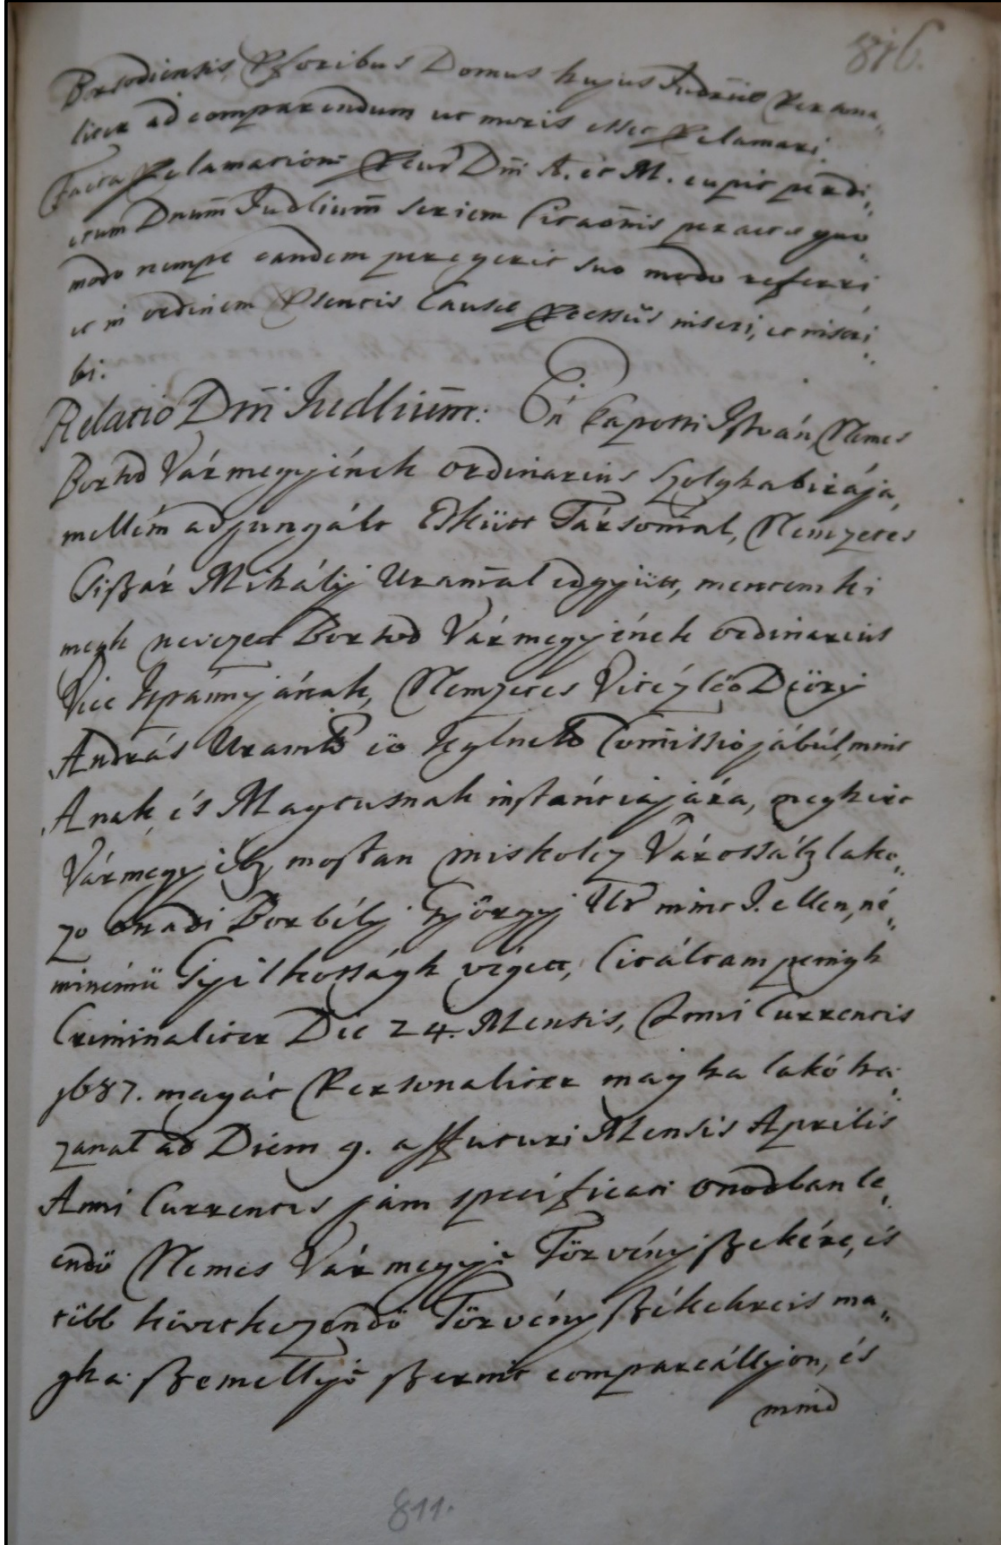 816.
Borsodiensis Pforibus Domus hujus Judriae Per ama„
liter ad comparendum ut moris esset Pclamari.
Facta Pclamatione Pcur Dni A. et M. cupit perdi„
ctum Dnum Judlium seriem Citaonis peractae quo„
modo nempe eandem peregerit suo modo referri
et in ordinem Psentis Causae Pcessus inseri, et inscri„
bi.
Relatio Dni Judlium: Én Kaposi István Nemes
Borsod Vármegyjének ordinarius Szolgha birája,
mellém adjungált Eskütt Társommal, Nemzetes
Csiszár Mihályj Urammal edgyjütt, mentem ki
megh nevezett Borsod Vármegyjének ordinarius
Vice Ispánnyjának, Nemzetes Vitézlő Dőryj
András Uramk ő Kglnek Comissiojábúl, mint
Anak, és Magtusnak instántiajára, megh irt
Vármegyjéb, mostan miskolcz Várossáb lako„
zo onadi Borbélyj Györgyj Ur mint I. ellen, né„
minémű Gyilkosságh végett, Citáltam penigh
Criminaliter Die 24. Mensis, Anni Currentis
1687. magát Personaliter maghá lakó há„
zanal ad Diem 9. affuturi Mensis Aprilis
Anni Currentis jam specificati onodban le„
endő Nemes Vármegyje Törvényj székére, és
több következendő Törvény székekreis ma„
gha személlyje szerint compareállyjon, és
mind
811.